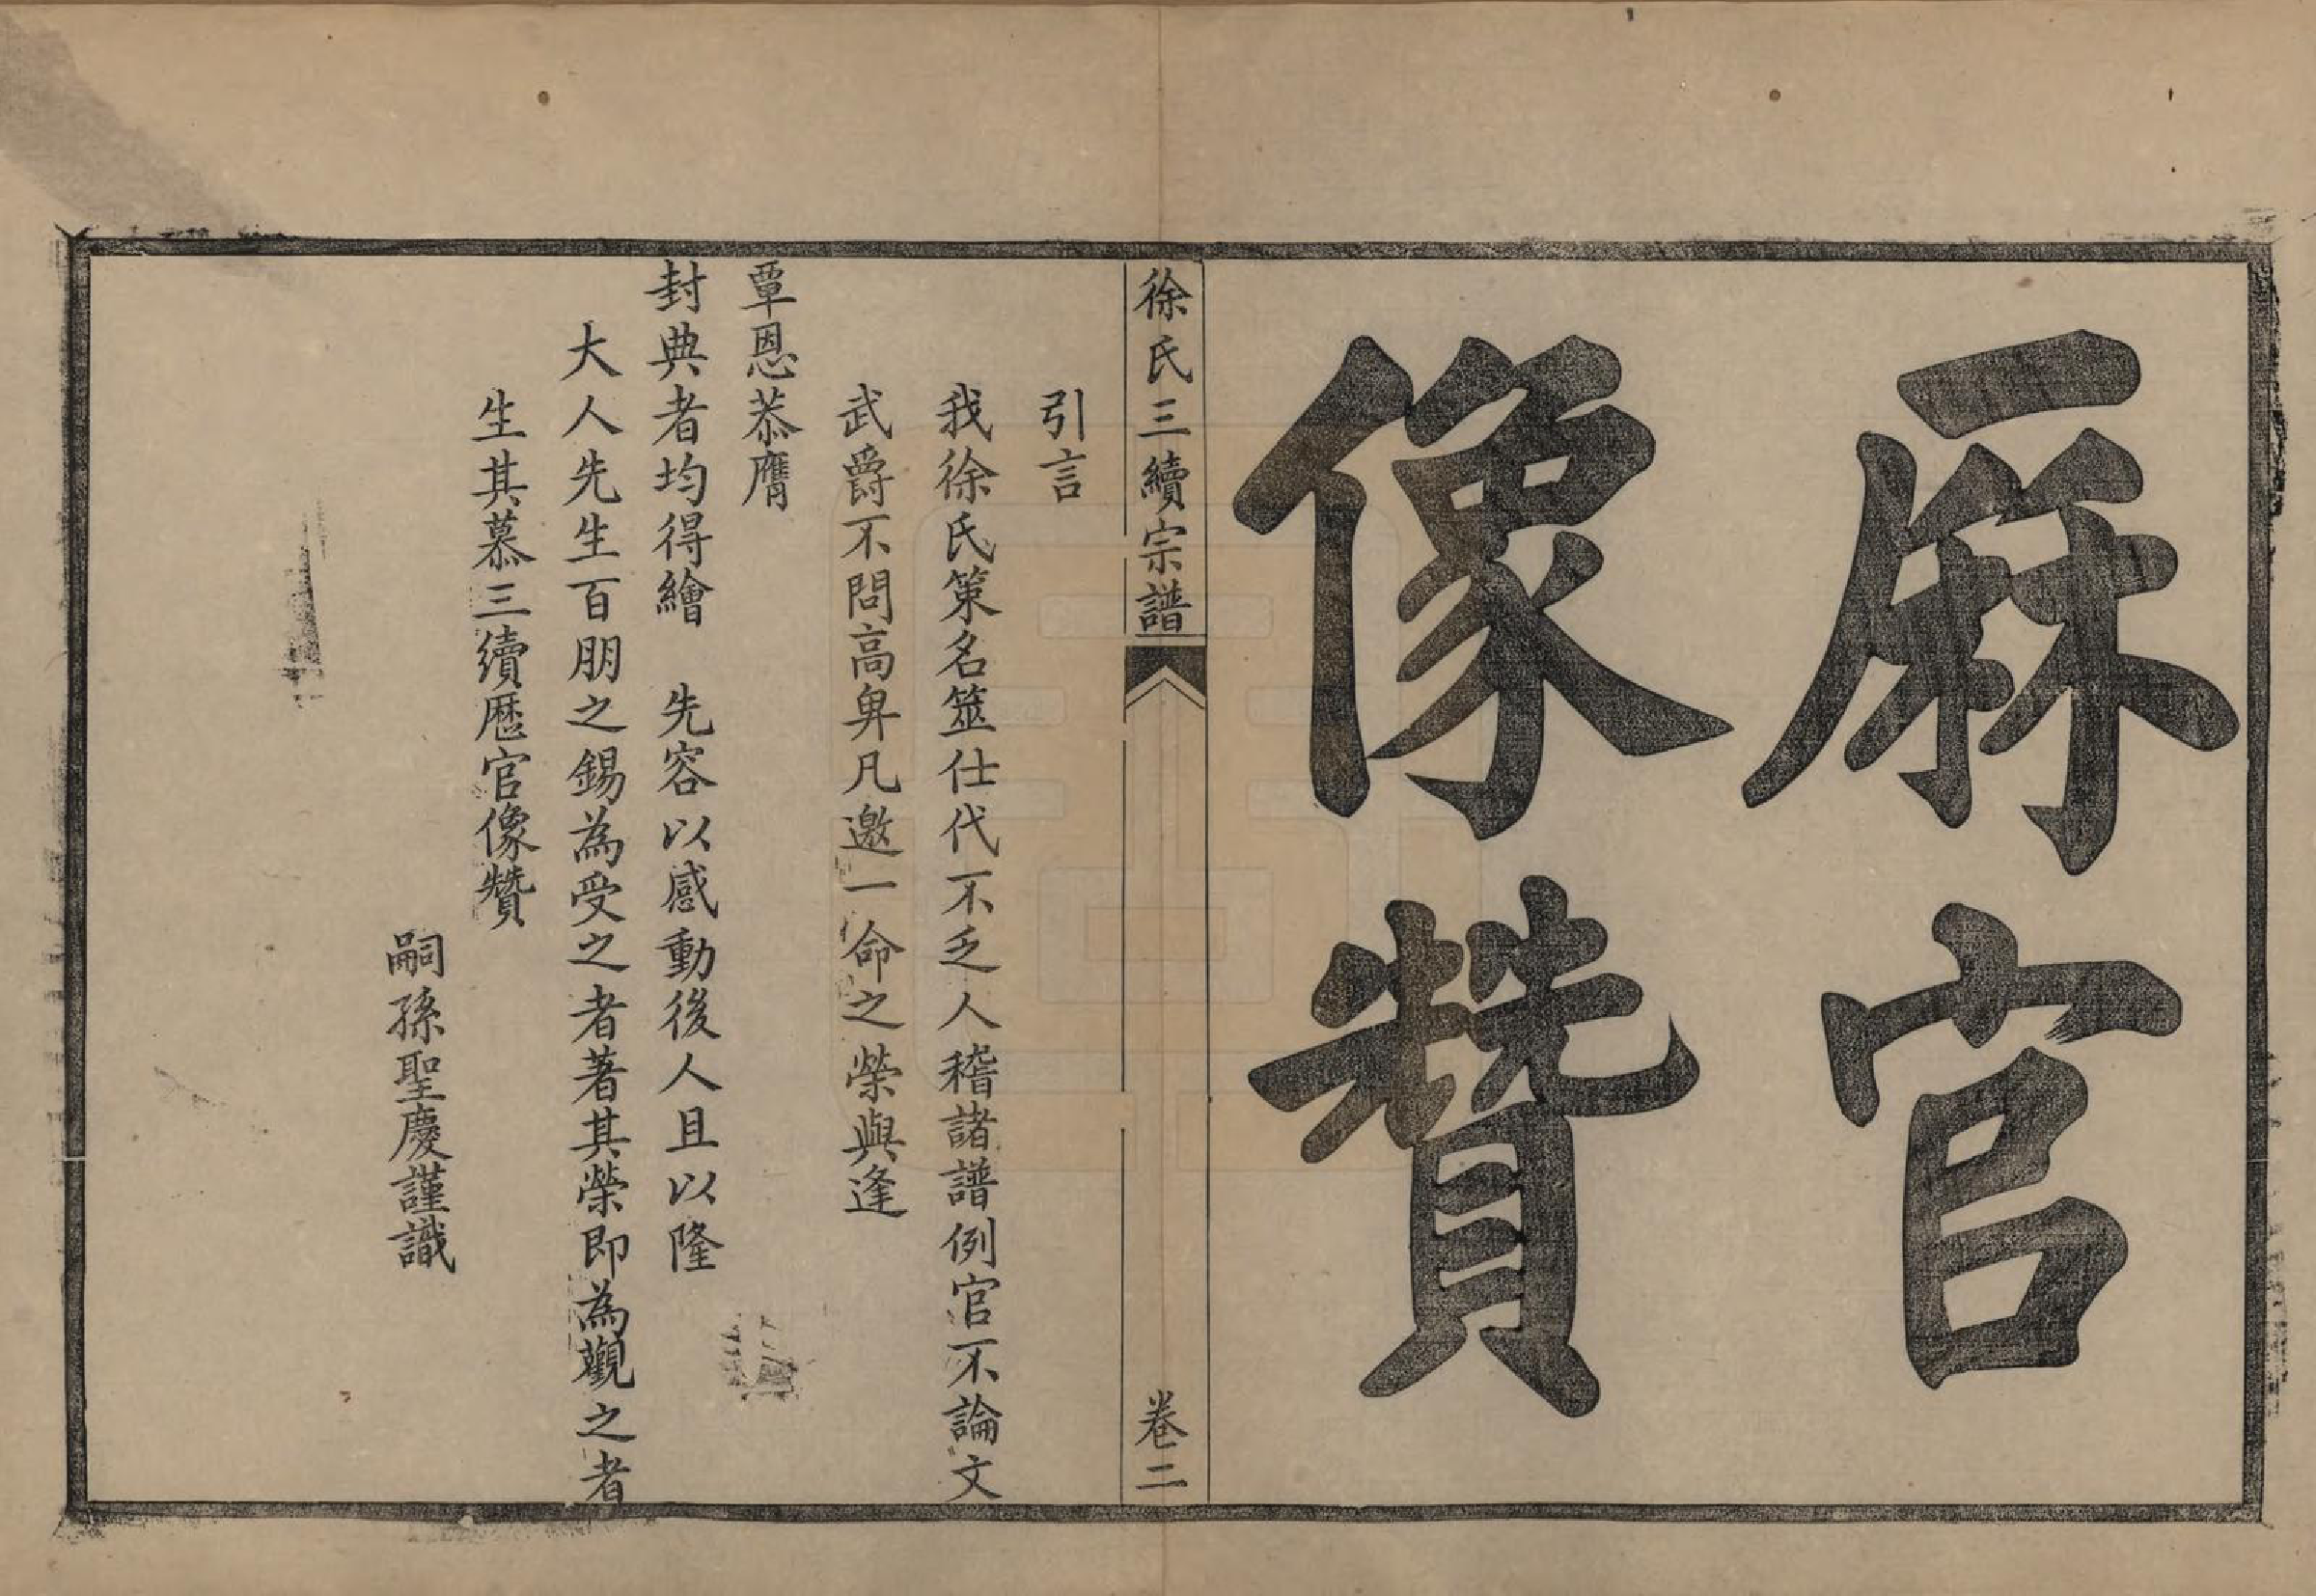 厤官
像贊
徐氏三續宗譜 卷二
引言
我徐氏策名筮仕代不乏人稽諸譜例官不論文
武爵不問高卑凡邀一命之榮與逢
覃恩恭膺
封典者均得繪 先容以感動後人且以隆
大人先生百朋之錫為受之者著其榮即為觀之者
生其慕三續歷官像贊
嗣孫聖慶謹識